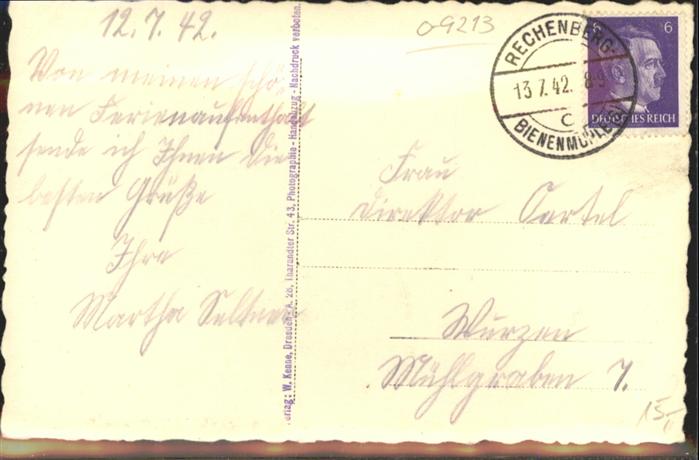 12.7.42.
Von meinen schö-
nen Ferienaufenthalt
sende ich Ihnen die
besten Grüße
Ihre
Martha
Verlag: W. Keane, Dresden-A. 28, Tharandter Str. 43, Photographie - Handabzug - Nachdruck verboten.
09213
RECHENBERG-
13.7.42. 8-9
C
BIENENMÜHLE
6
DEUTSCHES REICH
Frau
Direktor Oertel
Wurzen
Mühlgraben 7.
15,-